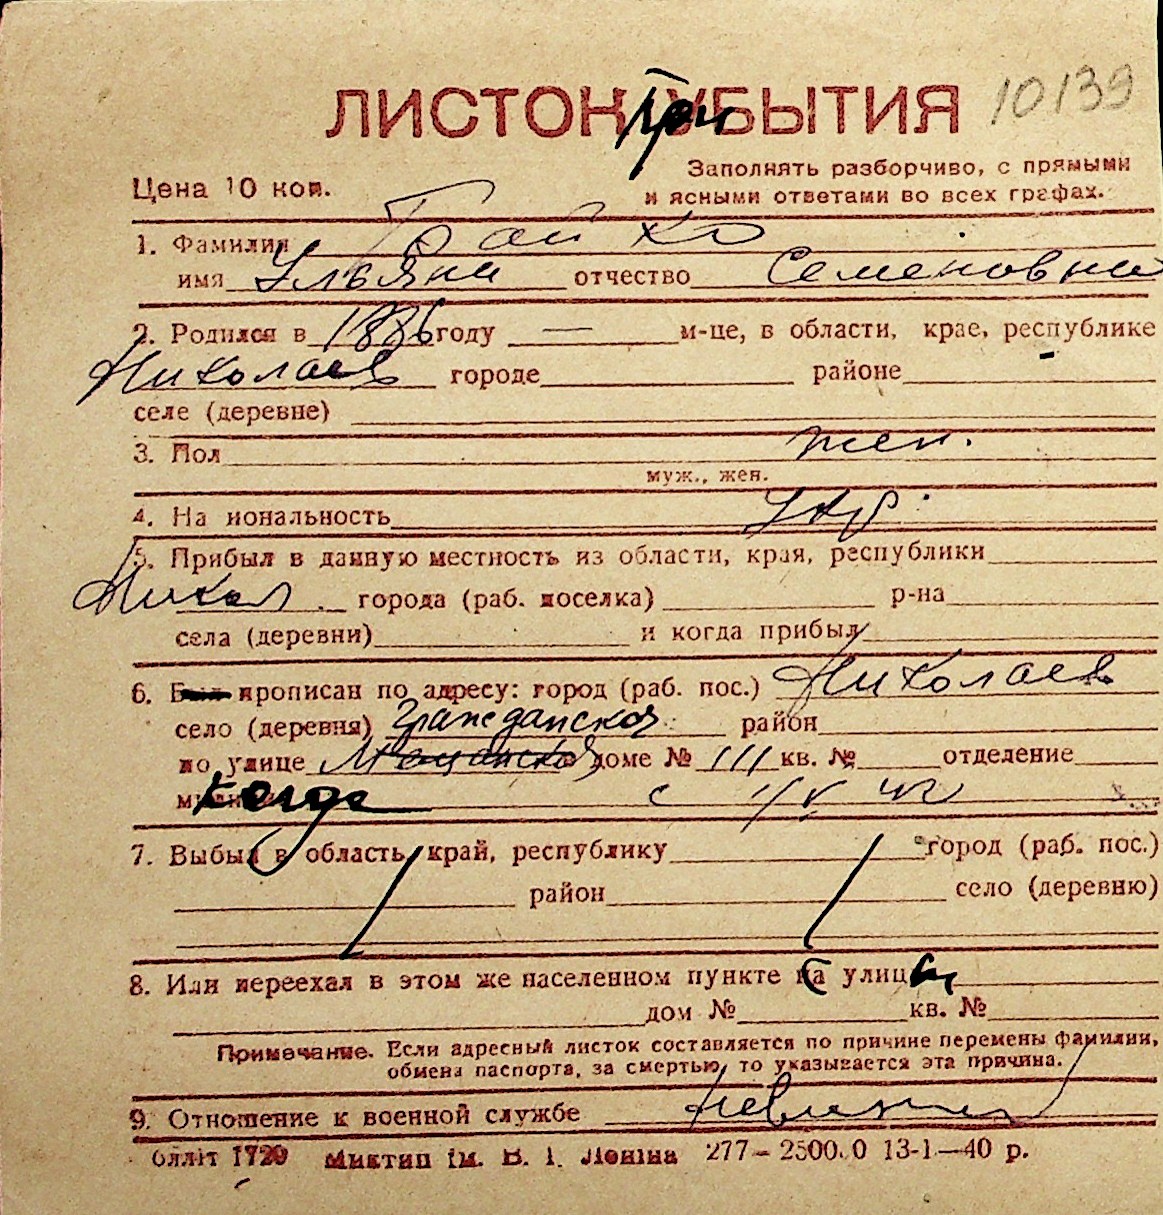 ЛИСТОК УБЫТИЯ 10139
При
Цена 10 коп. Заполнять разборчиво, с прямыми
и ясными ответами во всех графах.
1. Фамилия Бойко
имя Ульяна отчество Семеновна
2. Родился в 1886 году — м-це, в области, крае, республике
Николаев городе районе
селе (деревне)
3. Пол жен.
муж., жен.
4. На иональность Укр.
5. Прибыл в данную местность из области, края, республики
Никол. города (раб. поселка) р-на
села (деревни) и когда прибыл
6. Был прописан по адресу: город (раб. пос.) Николаев
село (деревня) Гражданской район
по улице доме № 111 кв. № отделение
когда с 1/V 42
7. Выбыл в область, край, республику город (раб. пос.)
район село (деревню)
8. Или переехал в этом же населенном пункте на улиц
дом № кв. №
Примечание. Если адресный листок составляется по причине перемены фамилии,
обмена паспорта, за смертью, то указывается эта причина.
9. Отношение к военной службе
блліт 1720 Миктип ім. В. І. Леніна 277—2500.0 13-1—40 р.